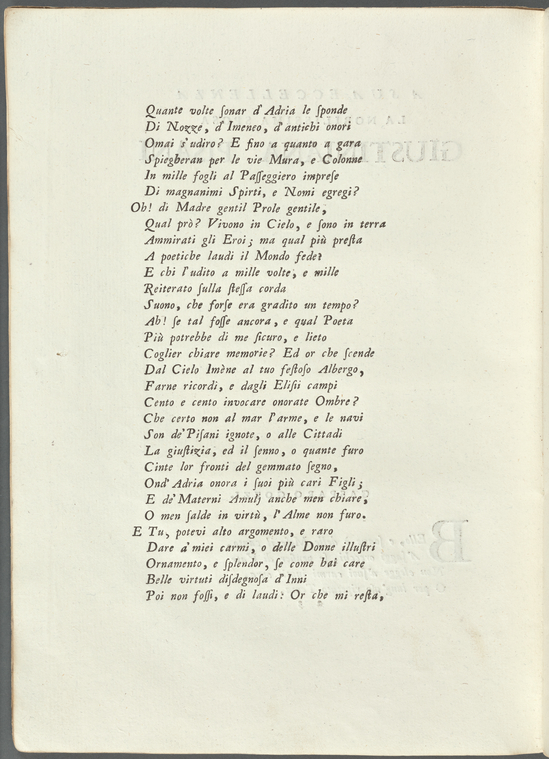 Quante volte ſonar d'Adria le ſponde
Di Nozze, d'Imeneo, d'antichi onori
Omai s'udiro? E fino a quanto a gara
Spiegheran per le vie Mura, e Colonne
In mille fogli al Paſſeggiero impreſe
Di magnanimi Spirti, e Nomi egregi?
Oh! di Madre gentil Prole gentile,
Qual prò? Vivono in Cielo, e ſono in terra
Ammirati gli Eroi; ma qual più preſta
A poetiche laudi il Mondo fede?
E chi l'udito a mille volte, e mille
Reiterato ſulla ſteſſa corda
Suono, che forſe era gradito un tempo?
Ah! ſe tal foſſe ancora, e qual Poeta
Più potrebbe di me ſicuro, e lieto
Coglier chiare memorie? Ed or che ſcende
Dal Cielo Imène al tuo feſtoſo Albergo,
Farne ricordi, e dagli Eliſii campi
Cento e cento invocare onorate Ombre?
Che certo non al mar l'arme, e le navi
Son de' Piſani ignote, o alle Cittadi
La giuſtizia, ed il ſenno, o quante furo
Cinte lor fronti del gemmato ſegno,
Ond' Adria onora i ſuoi più cari Figli;
E de' Materni Amulj anche men chiare,
O men ſalde in virtù, l'Alme non furo.
E Tu, potevi alto argomento, e raro
Dare a' miei carmi, o delle Donne illuſtri
Ornamento, e ſplendor, ſe come hai care
Belle virtuti diſdegnoſa d'Inni
Poi non foſſi, e di laudi: Or che mi reſta,